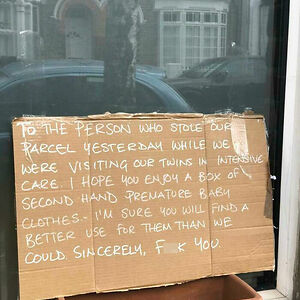 TO THE PERSON WHO STOLE OUR
PARCEL YESTERDAY WHILE WE
WERE VISITING OUR TWINS IN INTENSIVE
CARE. I HOPE YOU ENJOY A BOX OF
SECOND HAND PREMATURE BABY
CLOTHES. I'M SURE YOU WILL FIND A
BETTER USE FOR THEM THAN WE
COULD. SINCERELY, F K YOU.